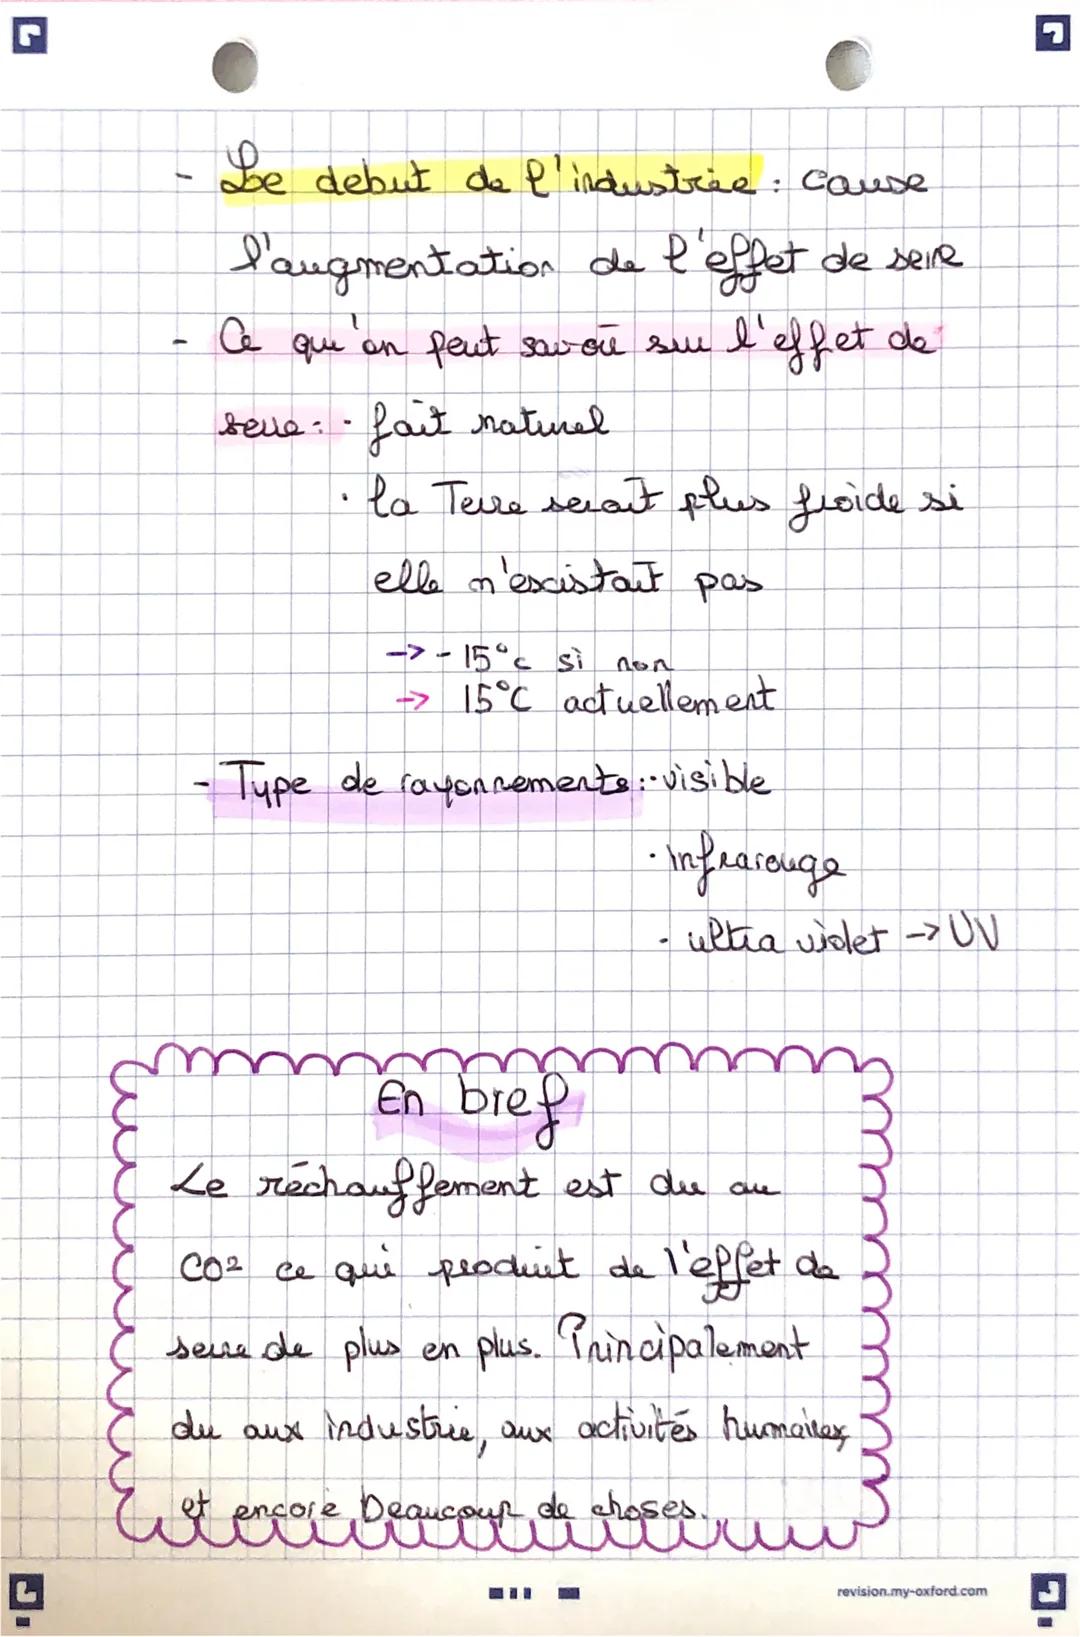 - Le debut de l'industrie : cause
l'augmentation de l'effet de serre
- Ce qu'on peut savoir sur l'effet de
serre : · fait naturel
· la Terre serait plus froide si
elle n'existait pas
-> - 15°c si non
-> 15°C actuellement
- Type de rayonnements : · visible
· infrarouge
· ultra violet -> UV
En bref
Le réchauffement est du au
CO2 ce qui produit de l'effet de
serre de plus en plus. Principalement
du aux industrie, aux activités humaines
et encore beaucoup de choses.
revision.my-oxford.com